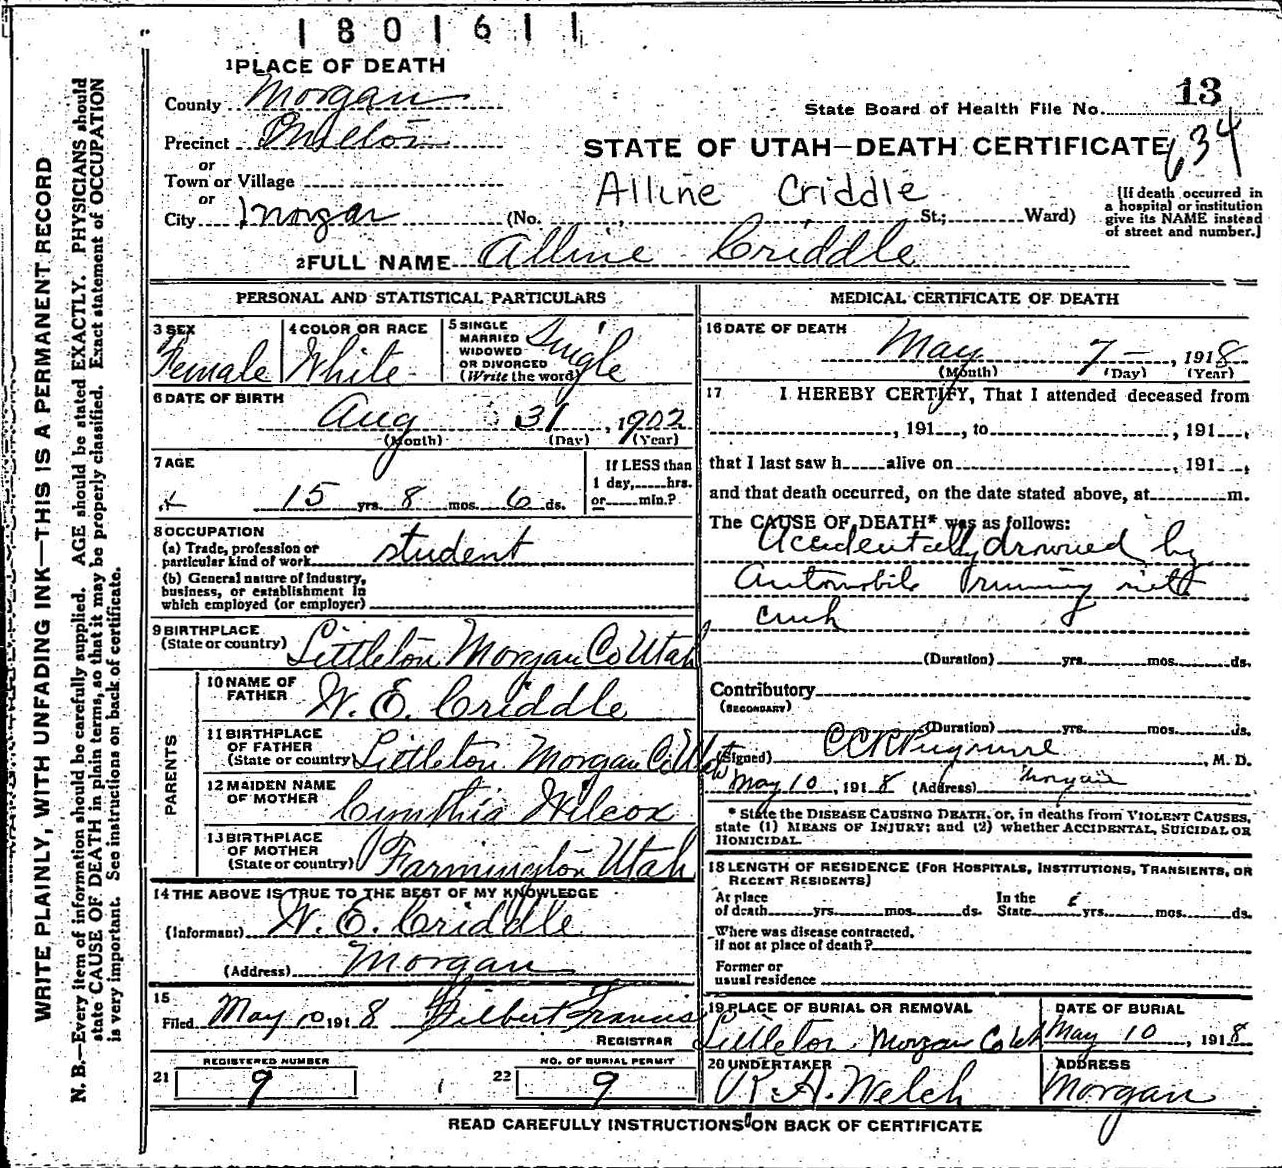 1801611
1 PLACE OF DEATH
County Morgan
State Board of Health File No. 13
Precinct Milton
634
STATE OF UTAH—DEATH CERTIFICATE
or
Town or Village
Alline Criddle
or
City Morgan (No. , St.; Ward)
[If death occurred in
a hospital or institution
give its NAME instead
of street and number.]
2 FULL NAME Alline Criddle
PERSONAL AND STATISTICAL PARTICULARS
3 SEX
Female
4 COLOR OR RACE
White
5 SINGLE
MARRIED
WIDOWED
OR DIVORCED
(Write the word)
Single
6 DATE OF BIRTH
Aug 31, 1902
(Month) (Day) (Year)
7 AGE
15 yrs. 8 mos. 6 ds.
If LESS than
1 day, hrs.
or min.?
8 OCCUPATION
(a) Trade, profession or
particular kind of work student
(b) General nature of Industry,
business, or establishment in
which employed (or employer)
9 BIRTHPLACE
(State or country) Littleton Morgan Co Utah
PARENTS
10 NAME OF
FATHER W. E. Criddle
11 BIRTHPLACE
OF FATHER
(State or country) Littleton Morgan Co Utah
12 MAIDEN NAME
OF MOTHER Cynthia Wilcox
13 BIRTHPLACE
OF MOTHER
(State or country) Farmington Utah
14 THE ABOVE IS TRUE TO THE BEST OF MY KNOWLEDGE
(Informant) W. E. Criddle
(Address) Morgan
15
Filed May 10 1918 Gilbert Francis
REGISTRAR
REGISTERED NUMBER
21 9
NO. OF BURIAL PERMIT
22 9
MEDICAL CERTIFICATE OF DEATH
16 DATE OF DEATH
May 7 — , 1918
(Month) (Day) (Year)
17 I HEREBY CERTIFY, That I attended deceased from
, 191 , to , 191 ,
that I last saw h alive on , 191 ,
and that death occurred, on the date stated above, at m.
The CAUSE OF DEATH* was as follows:
Accidentally drowned by
Automobile running into
creek
(Duration) yrs. mos. ds.
Contributory
(SECONDARY)
(Duration) yrs. mos. ds.
(Signed) , M. D.
May 10, 1918 (Address) Morgan
* State the DISEASE CAUSING DEATH, or, in deaths from VIOLENT CAUSES,
state (1) MEANS OF INJURY; and (2) whether ACCIDENTAL, SUICIDAL OR
HOMICIDAL.
18 LENGTH OF RESIDENCE (FOR HOSPITALS, INSTITUTIONS, TRANSIENTS, OR
RECENT RESIDENTS)
At place In the
of death yrs. mos. ds. State yrs. mos. ds.
Where was disease contracted,
if not at place of death?
Former or
usual residence
19 PLACE OF BURIAL OR REMOVAL
Littleton Morgan Co Utah
DATE OF BURIAL
May 10, 1918
20 UNDERTAKER
R. A. Welch
ADDRESS
Morgan
READ CAREFULLY INSTRUCTIONS ON BACK OF CERTIFICATE
WRITE PLAINLY, WITH UNFADING INK—THIS IS A PERMANENT RECORD
N. B.—Every item of information should be carefully supplied. AGE should be stated EXACTLY. PHYSICIANS should
state CAUSE OF DEATH in plain terms, so that it may be properly classified. Exact statement of OCCUPATION
is very important. See instructions on back of certificate.